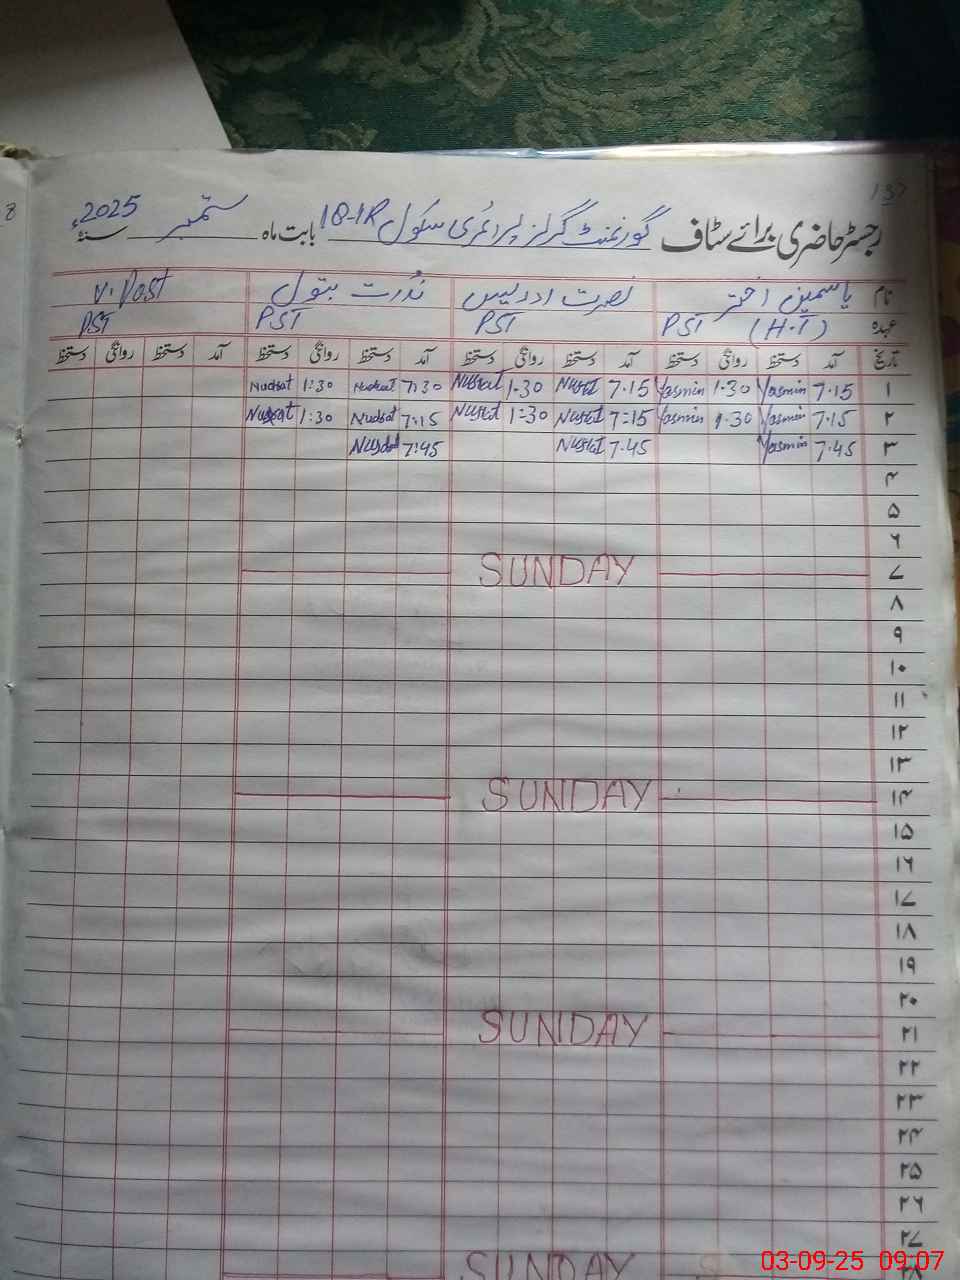 رجسٹر حاضری برائے سٹاف گورنمنٹ گرلز پرائمری سکول 18-1R بابت ماہ ستمبر سنہ 2025ء
نام یاسمین اختر نصرت ادریس ندرت بتول V. Post
عہدہ PST (H.T) PST PST PST
تاریخ آمد دستخط روانگی دستخط آمد دستخط روانگی دستخط آمد دستخط روانگی دستخط آمد دستخط روانگی دستخط
۱ 7.15 Yasmin 1.30 Yasmin 7.15 Nusrat 1.30 Nusrat 7:30 Nudrat 1:30 Nudrat
۲ 7.15 Yasmin 1.30 Yasmin 7:15 Nusrat 1:30 Nusrat 7:15 Nudrat 1:30 Nudrat
۳ 7.45 Yasmin 7.45 Nusrat 7:45 Nudrat
۴
۵
۶
۷ SUNDAY
۸
۹
۱۰
۱۱
۱۲
۱۳
۱۴ SUNDAY
۱۵
۱۶
۱۷
۱۸
۱۹
۲۰
۲۱ SUNDAY
۲۲
۲۳
۲۴
۲۵
۲۶
۲۷
۲۸ SUNDAY
03-09-25 09:07